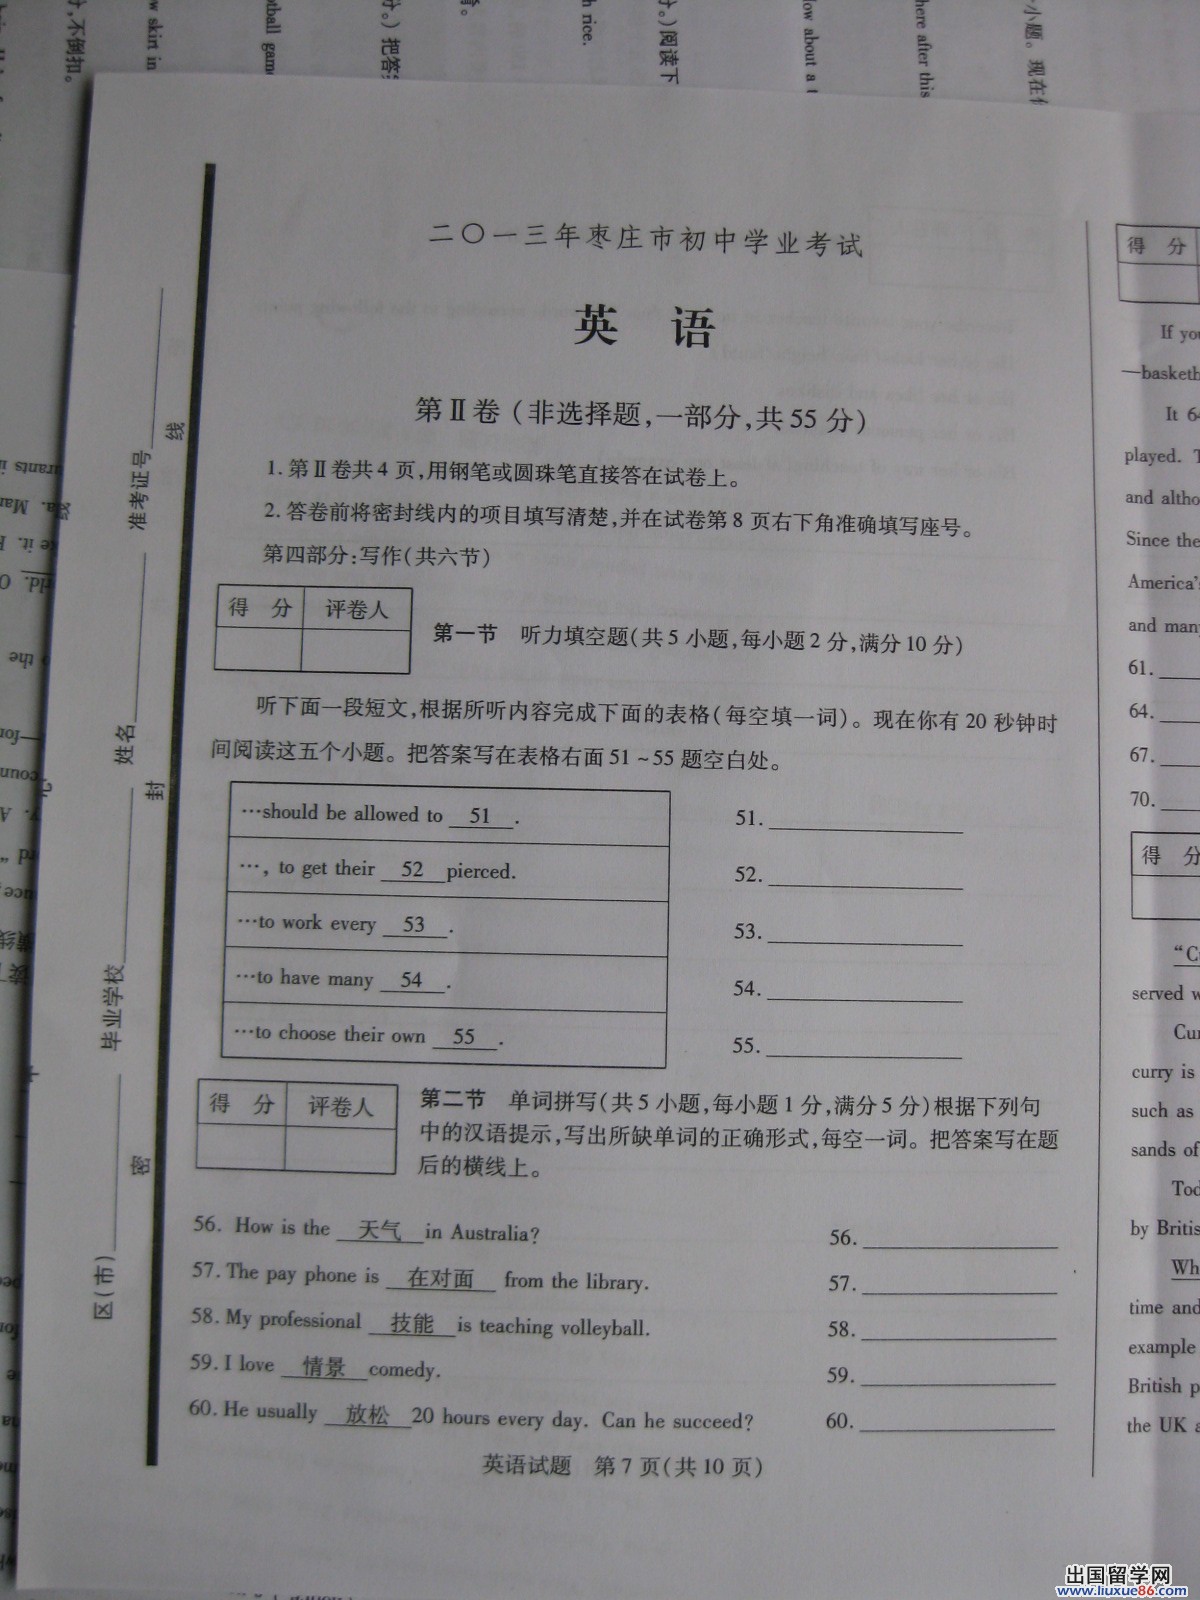 二〇一三年枣庄市初中学业考试
英 语
第Ⅱ卷（非选择题,一部分,共55分）
1.第Ⅱ卷共4页,用钢笔或圆珠笔直接答在试卷上。
2.答卷前将密封线内的项目填写清楚,并在试卷第8页右下角准确填写座号。
第四部分:写作(共六节)
得 分 评卷人
第一节 听力填空题(共5小题,每小题2分,满分10分)
听下面一段短文,根据所听内容完成下面的表格(每空填一词)。现在你有20秒钟时
间阅读这五个小题。把答案写在表格右面51~55题空白处。
…should be allowed to 51 . 51.
…, to get their 52 pierced. 52.
…to work every 53 . 53.
…to have many 54 . 54.
…to choose their own 55 . 55.
得 分 评卷人
第二节 单词拼写(共5小题,每小题1分,满分5分)根据下列句
中的汉语提示,写出所缺单词的正确形式,每空一词。把答案写在题
后的横线上。
56. How is the 天气 in Australia? 56.
57. The pay phone is 在对面 from the library. 57.
58. My professional 技能 is teaching volleyball. 58.
59. I love 情景 comedy. 59.
60. He usually 放松 20 hours every day. Can he succeed? 60.
英语试题 第7页(共10页)
区(市) 毕业学校 姓名 准考证号
密 封 线
得 分
If you
—basketb
It 6
played. T
and altho
Since the
America's
and many
61.
64.
67.
70.
得 分
"Cu
served w
Cur
curry is
such as
sands of
Tod
by Britis
Wh
time and
example
British p
the UK a
分,不倒扣。
w skirt in
tball game
分。) 把答
h rice.
分。)阅读下
low about a t
here after this
小题。现在你
出国留学网
www.liuxue86.com